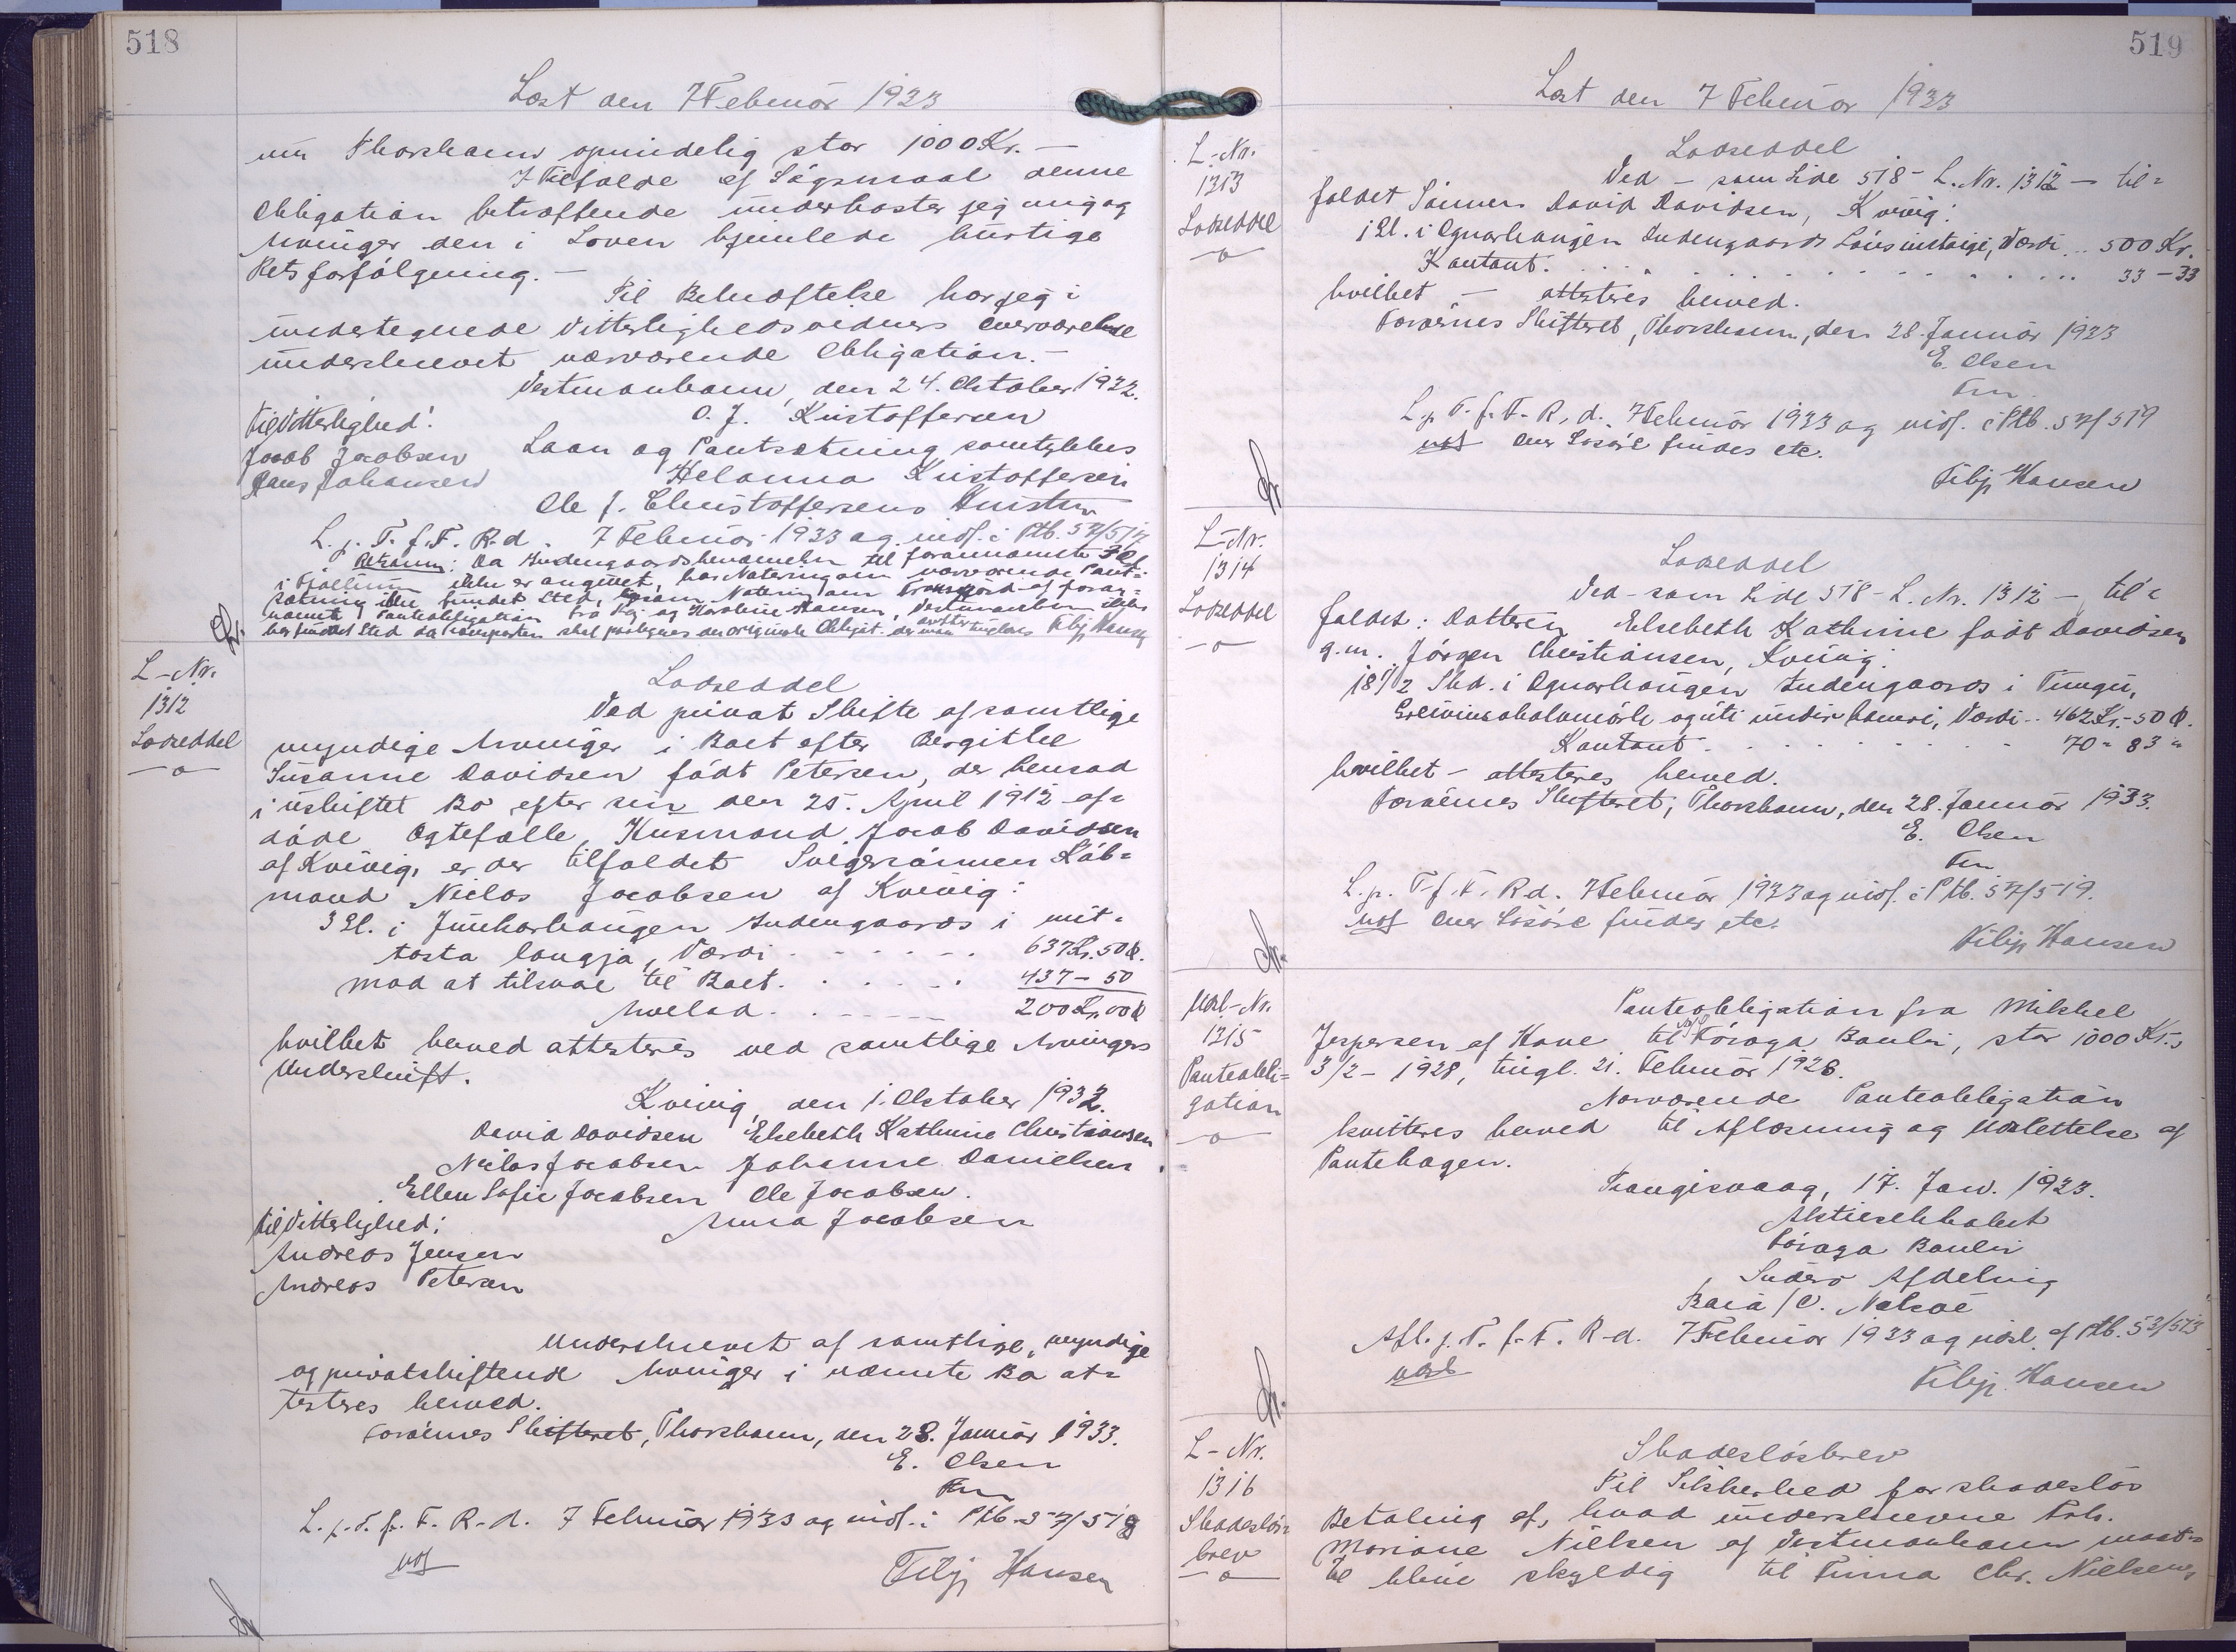 518
Læst den 7 Februar 1933
um Thorshavn oprindelig stor 1000 Kr. —
I Tilfælde af Søgsmaal denne
Obligation betræffende underkaster jeg mig og
Arvinger den i Loven hjemlede hurtige
Retsforfølgning. —
Til Bekræftelse har jeg i
undertegnede Vitterlighedsvidners Overværelse
underskrevet nærværende Obligation. —
Vestmanhavn, den 24. Oktober 1932.
O. J. Kristoffersen
Til Vitterlighed:
Jacob Jacobsen
Hans Johansen
Laan og Pantsætning samtykkes
Helanna Kristoffersen
Ole J. Christoffersens Hustru
L. p. T. f. F. R-d. 7 Februar 1933 og indf. i Ptb. 52/517
Retsanm: Da Indengaardsbenævnelsen til forannævnte
i Fjællinum ikke er angivet, har Notering om nærværende Pant-
sætning ikke fundet Sted, Notering om Transport af foran-
nævnte Panteobligation fra og Karoline Hansen, Vestmanhavn ikke
har fundet Sted da skal paategnes den originale Obligat. der maa tinglæses Filip Hansen
L-Nr.
1312
Lodseddel
—o—
Lodseddel
Ved privat Skifte af samtlige
myndige Arvinger i Boet efter Bergithe
Susanne Davidsen født Petersen, der hensad
i uskiftet Bo efter sin den 25. April 1912 af-
døde Ægtefælle, Husmand Jacob Davidsen
af Kvivig, er der tilfaldet Svigersønnen Køb-
mand Niclas Jacobsen af Kvivig:
3 Sl. i Junkarhaugen Indengaards i mit-
tasta langja, Værdi . . . . . . 637 Kr. 50 Ø.
mod at tilsvare til Boet . . . . . . 437 – 50
Arvelod . . . . . . 200 Kr. 00 Ø
hvilket herved attesteres ved samtlige Arvingers
Underskrift.
Kvivig, den 1. Oktober 1932.
David Davidsen Elsebeth Kathrine Christiansen
Niclas Jacobsen Johanne Danielsen
Ellen Sofie Jacobsen Ole Jacobsen.
Til Vitterlighed: Anna Jacobsen
Andreas Jensen
Andreas Petersen
Underskrevet af samtlige, myndige
og privatskiftende Arvinger i nævnte Bo at-
testeres herved.
Færøernes Skifteret, Thorshavn, den 28. Januar 1933.
E. Olsen
Fm
L. p. T. f. F. R-d. 7 Februar 1933 og indf. i Ptb. 52/518
Filip Hansen
519
Læst den 7 Februar 1933
L-Nr.
1313
Lodseddel
—o—
Lodseddel
Ved – som Side 518 – L. Nr. 1312 – til-
faldet Sønnen David Davidsen, Kvivig:
1 Sl. i Ognarhaugen Indengaards , Værdi .. 500 Kr.
Kontant. . . . . . . . . . . . 33 – 33
hvilket – attesteres herved.
Færøernes Skifteret, Thorshavn, den 28. Januar 1933
E. Olsen
Fm.
L. p. T. f. F. R. d. 7 Februar 1933 og indf. i Ptb. 52/519
Over Løsøre findes etc.
Filip Hansen
L-Nr.
1314
Lodseddel
—o—
Lodseddel
Ved – som Side 518 – L. Nr. 1312 – til-
faldet: Datteren Elsebeth Kathrine født Davidsen
g. m. Jørgen Christiansen, Kvivig:
18 1/2 Skd. i Ognarhaugen Indengaards i Tungu,
og úti undir hamri, Værdi .. 462 Kr. – 50 Ø.
Kontant . . . . . . . . . 70 " 83 "
hvilket – attesteres herved.
Færøernes Skifteret, Thorshavn, den 28. Januar 1933.
E. Olsen
Fm
L. p. T. f. F. R-d. 7 Februar 1933 og indf. i Ptb. 52/519.
Over Løsøre findes etc.
Filip Hansen
Udsl-Nr.
1315
Panteobli-
gation
—o—
Panteobligation fra Mikkel
Jespersen af Hove til A/S Føroya Banki, stor 1000 Kr.,
3/2 – 1928, tingl. 21. Februar 1928.
Nærværende Panteobligation
kvitteres herved til Aflæsning og Udslettelse af
Pantebogen.
Trangisvaag, 17. Jan. 1933.
Aktieselskabet
Føroya Banki
Suderø Afdeling
Afl. p. T. f. F. R-d. 7 Februar 1933 og udsl. af Ptb. 53/573
udsl
Filip Hansen
L-Nr.
1316
Skadesløs-
brev
—o—
Skadesløsbrev
Til Sikkerhed for skadesløs
Betaling af, hvad underskrevne Frk.
Mariane Nielsen af Vestmanhavn maat-
te blive skyldig til Firma Chr. Nielsen,